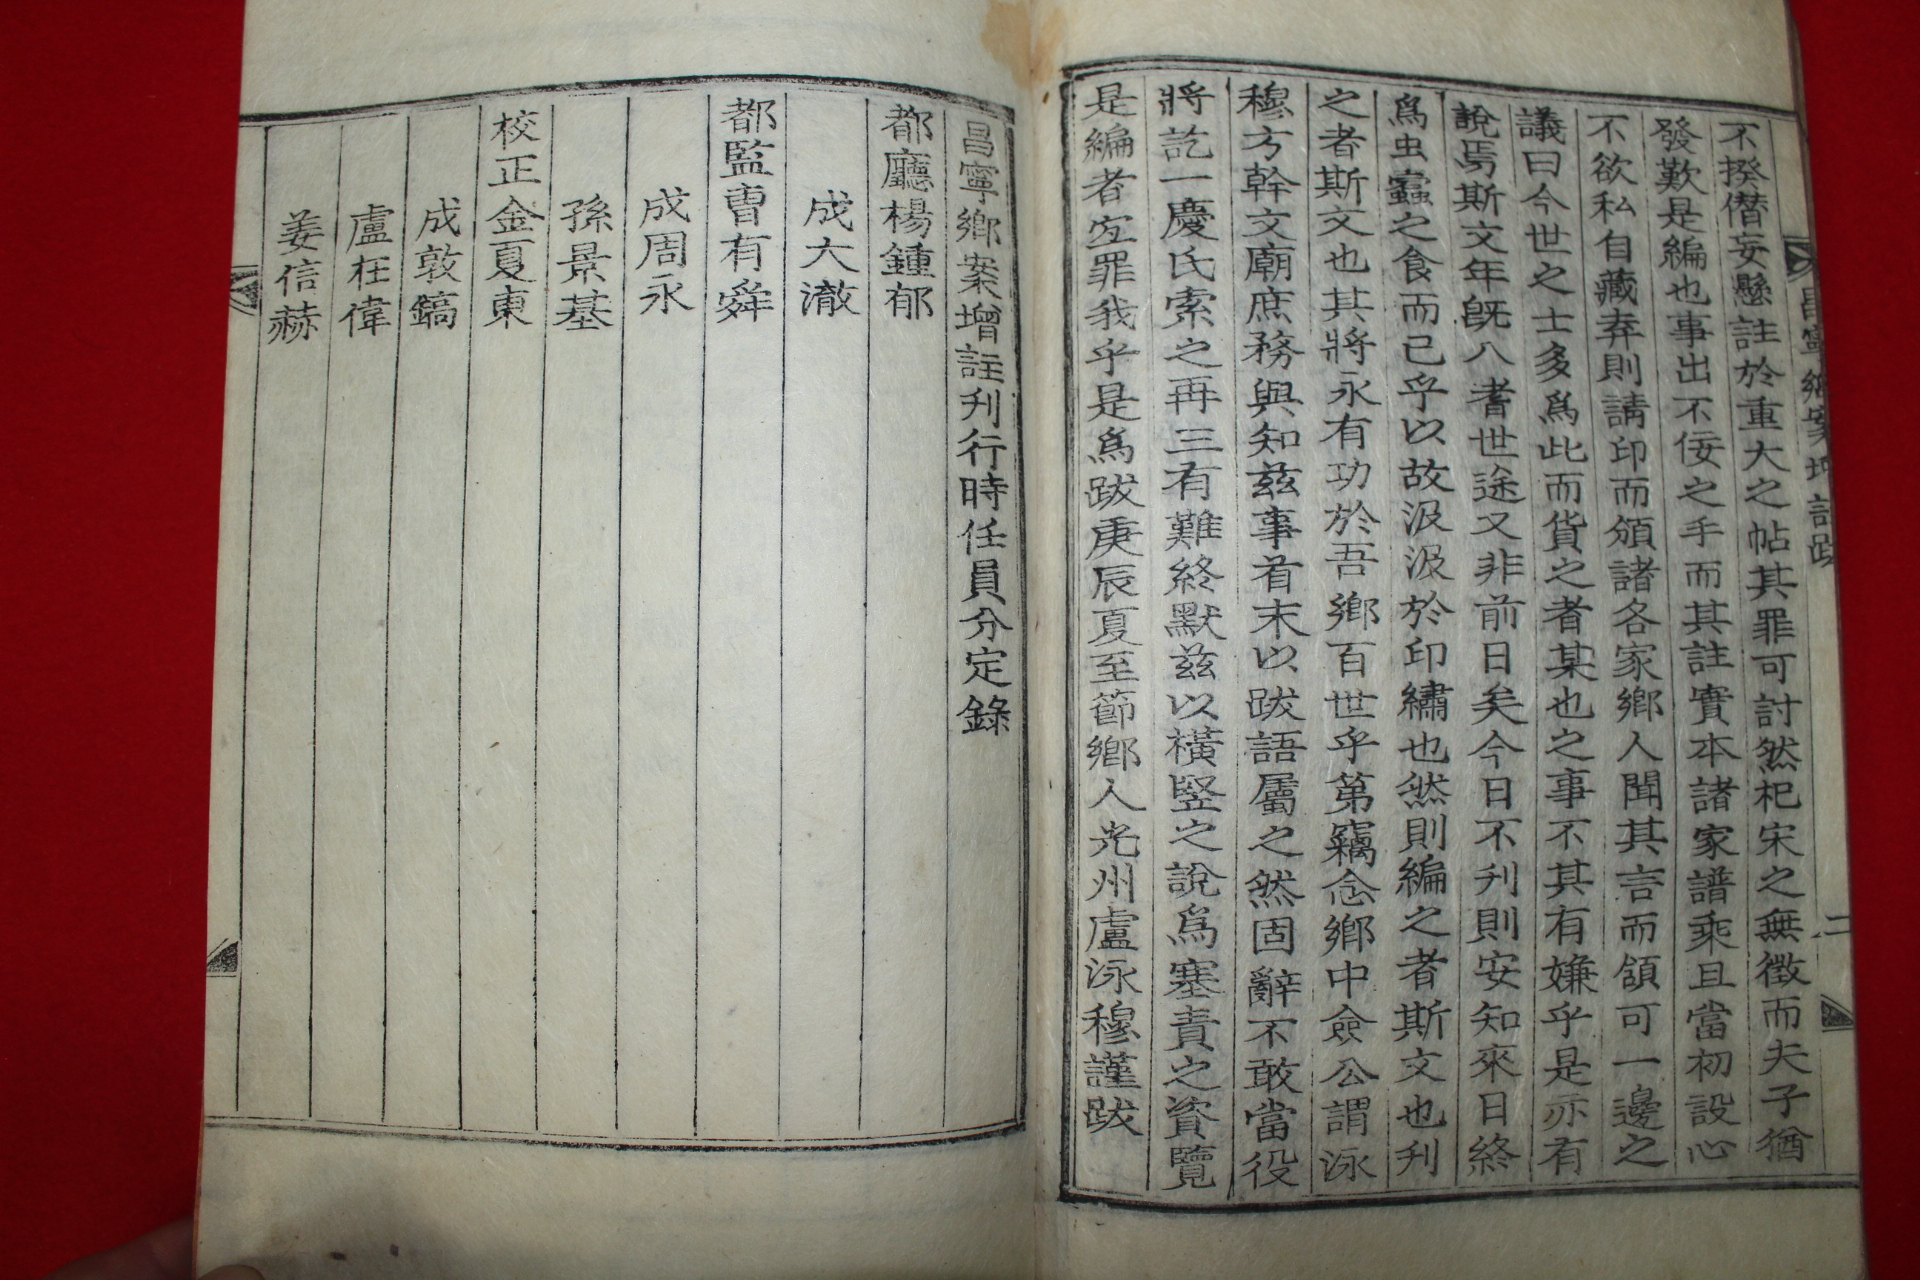 不揆僭妄懸註於重大之帖其罪可討然杞宋之無徵而夫子猶
發歎是編也事出不佞之手而其註實本諸家譜乘且當初設心
不欲私自藏弆則請印而頒諸各家鄉人聞其言而頷可一邊之
議曰今世之士多爲此而貨之者某也之事不其有嫌乎是亦有
說焉斯文年旣八耆世途又非前日矣今日不刋則安知來日終
爲虫蠧之食而已乎以故汲汲於印繡也然則編之者斯文也刋
之者斯文也其將永有功於吾鄉百世乎第竊念鄉中僉公謂泳
穆方幹文廟庶務與知玆事首末以跋語屬之然固辭不敢當役
將訖一慶氏索之再三有難終默玆以橫竪之說爲塞責之資覽
是編者宐罪我乎是爲跋庚辰夏至節鄉人光州盧泳穆謹跋
昌寧鄉案增註跋
二
昌寧鄉案增註刋行時任員分定錄
都廳楊鍾郁
成大澈
都監曺有舜
成周永
孫景基
校正金夏東
成敦鎬
盧枉偉
姜信赫